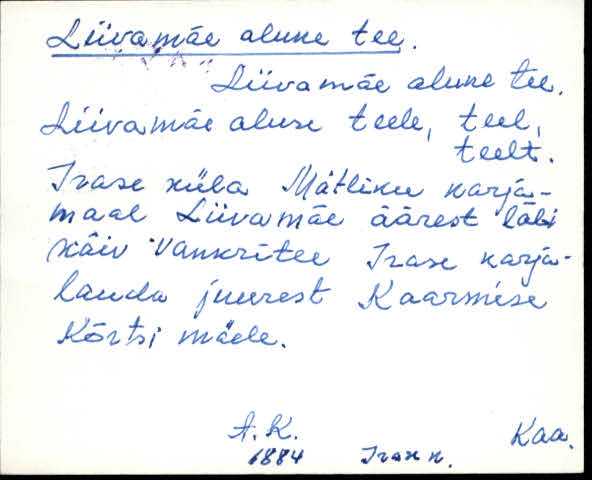 Liivamäe alune tee.
Liivamäe alune tee.
Liivamäe aluse teele, teel,
teelt.
Irase küla Mätliku karja-
maal Liivamäe äärest läbi
käiv vankritee Irase karja-
lauda juurest Kaarmise
Kõrtsi mäele.
A. K.
Kaa.
1884 Irase k.